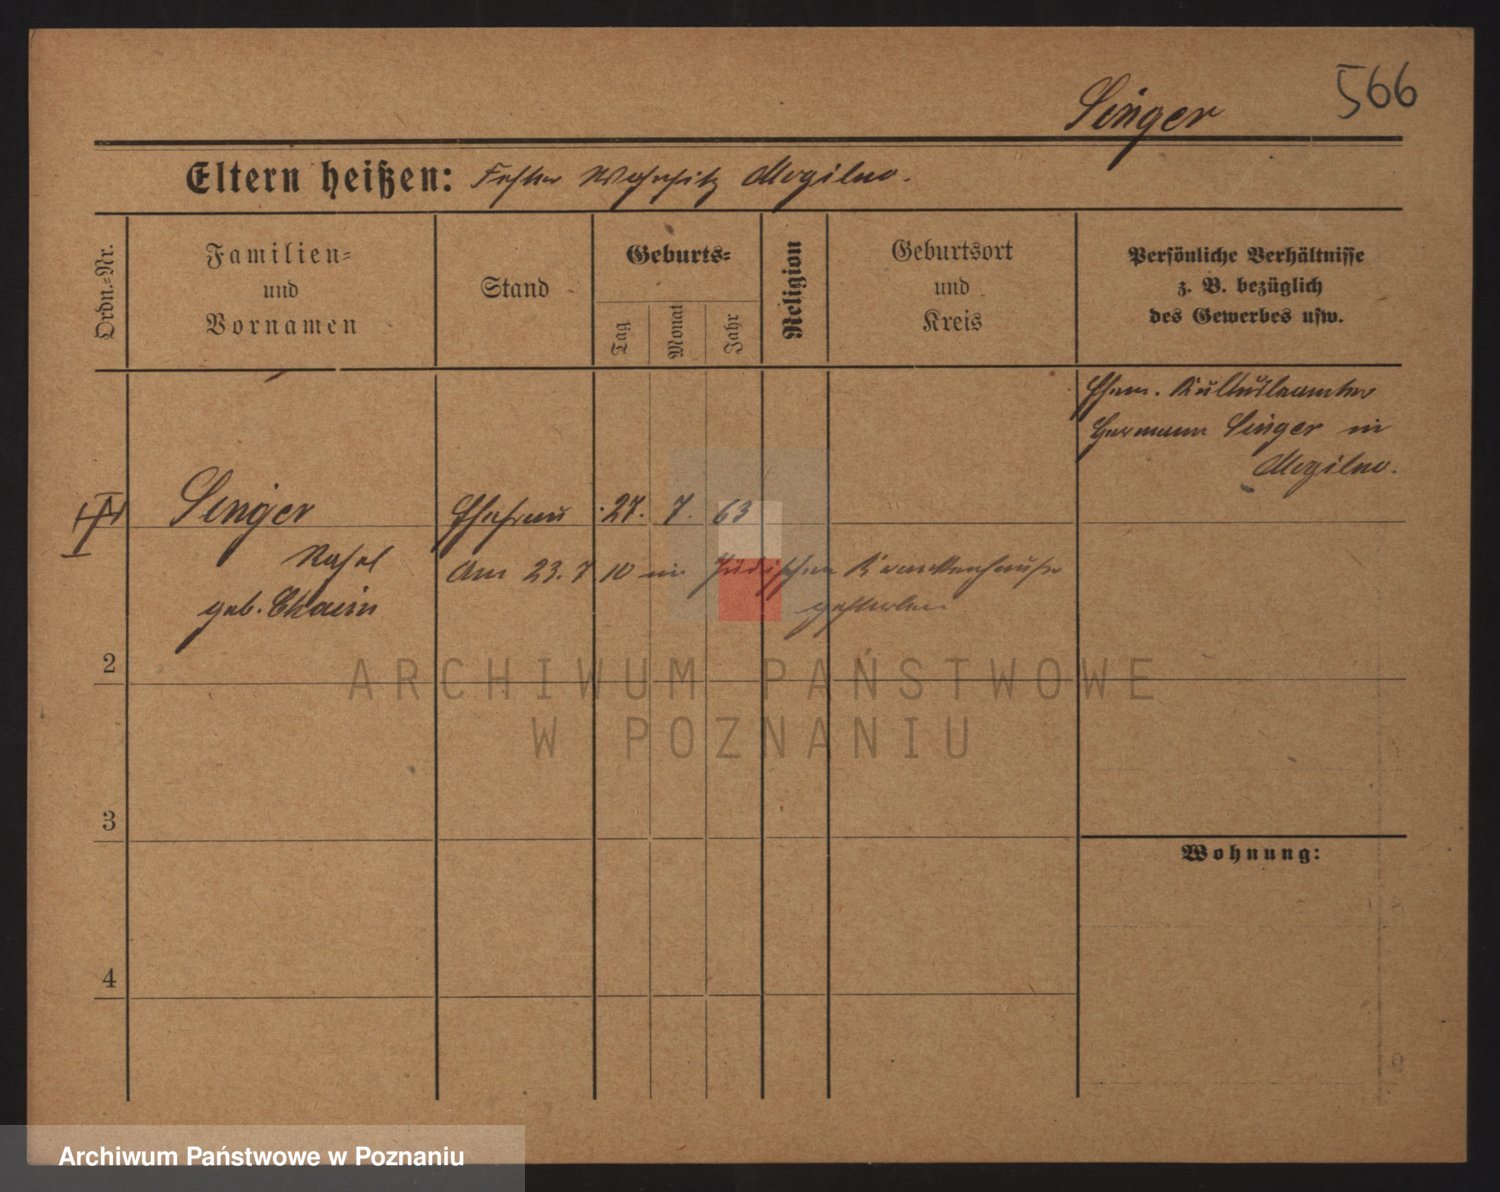 566
Singer
Eltern heißen: Fester Wohnsitz Mogilno.
Ordn.-Nr.
Familien-
und
Vornamen
Stand
Geburts-
Tag
Monat
Jahr
Religion
Geburtsort
und
Kreis
Persönliche Verhältnisse
z. B. bezüglich
des Gewerbes usw.
Ehem. Kultusbeamter
Hermann Singer in
Mogilno.
Singer Ehefrau 27. 7. 63
geb. Chaim
Am 23. 7 10 im Jüdischen Krankenhause
gestorben.
2
3
4
Wohnung:
ARCHIWUM PAŃSTWOWE
W POZNANIU
Archiwum Państwowe w Poznaniu